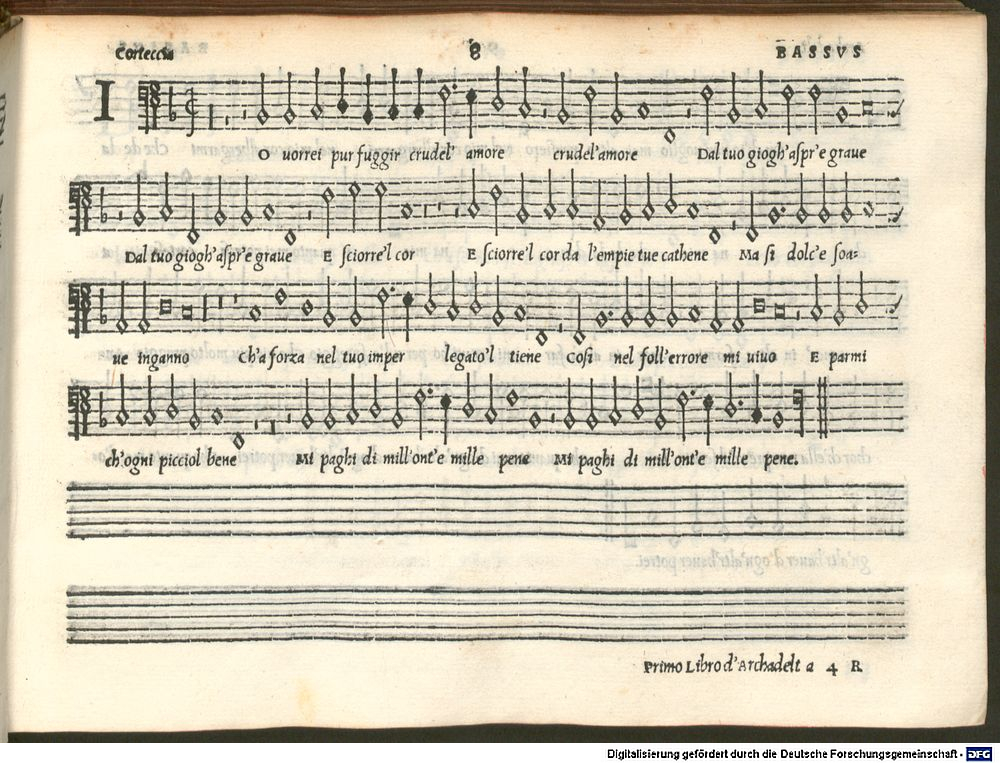 Corteccia 8 BASSVS
I O vorrei pur fuggir crudel' amore crudel' amore Dal tuo giogh' aspr' e graue
Dal tuo giogh' aspr' e graue E sciorre'l cor E sciorre'l cor da l'empie tue cathene Ma si dolc'e soa=
ue inganno ch'a forza nel tuo imper legato'l tiene Cosi nel foll'errore mi uiuo E parmi
ch'ogni picciol bene Mi paghi di mill'ont'e mille pene Mi paghi di mill'ont'e mille pene.
Primo Libro d'Archadelt a 4 R
Digitalisierung gefördert durch die Deutsche Forschungsgemeinschaft - DFG